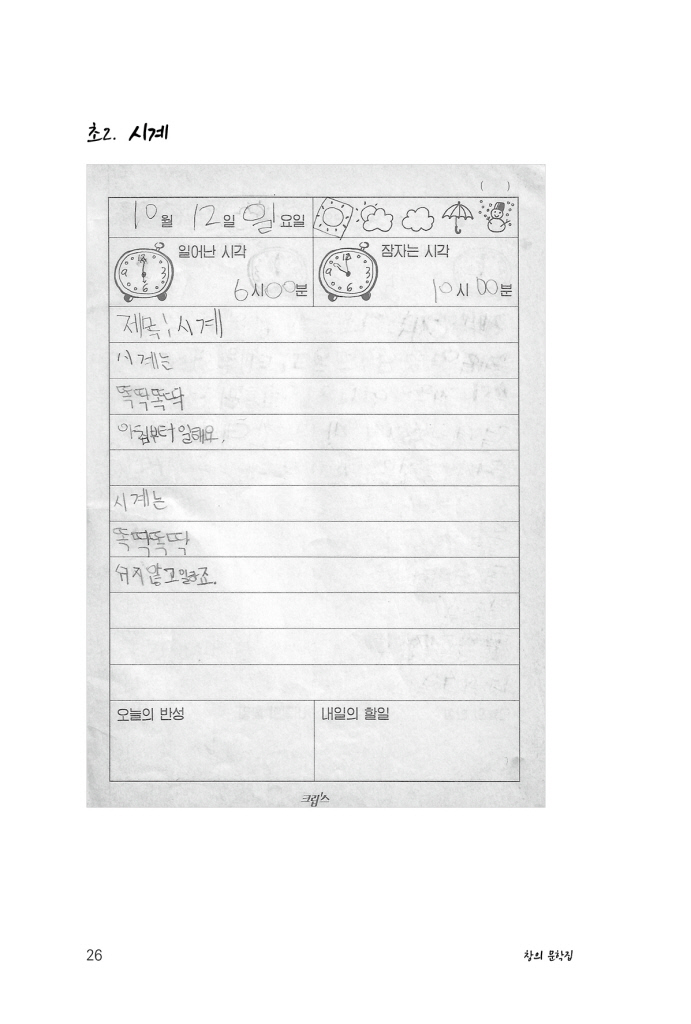 초2. 시계
( )
10월 12일 일요일
일어난 시각
6시00분
잠자는 시각
10시 00분
제목: 시계
시계는
똑딱똑딱
아침부터 일해요.
시계는
똑딱똑딱
쉬지 않고 일하죠.
오늘의 반성
내일의 할일
26
창의 문학집